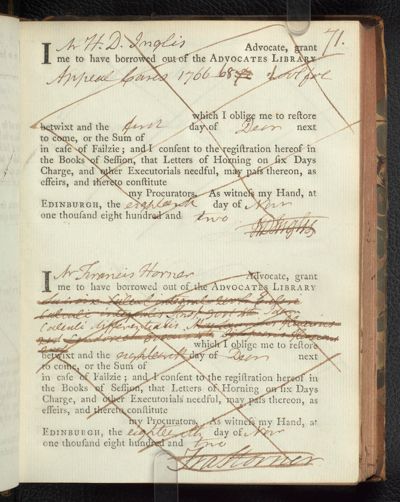 71.
I Mr H. D. Inglis Advocate, grant
me to have borrowed out of the ADVOCATES LIBRARY
Appeal Cases 1766 68
which I oblige me to restore
betwixt and the first day of Decr next
to come, or the Sum of
in case of Failzie; and I consent to the registration hereof in
the Books of Session, that Letters of Horning on six Days
Charge, and other Executorials needful, may pass thereon, as
effeirs, and thereto constitute
my Procurators. As witness my Hand, at
EDINBURGH, the eighteenth day of Novr
one thousand eight hundred and two
I Mr Francis Horner Advocate, grant
me to have borrowed out of the ADVOCATES LIBRARY
Calculi differentialis
which I oblige me to restore
betwixt and the eighteenth day of Decr next
to come, or the Sum of
in case of Failzie; and I consent to the registration hereof in
the Books of Session, that Letters of Horning on six Days
Charge, and other Executorials needful, may pass thereon, as
effeirs, and thereto constitute
my Procurators. As witness my Hand, at
EDINBURGH, the eighteenth day of Novr
one thousand eight hundred and two
Fra Horner